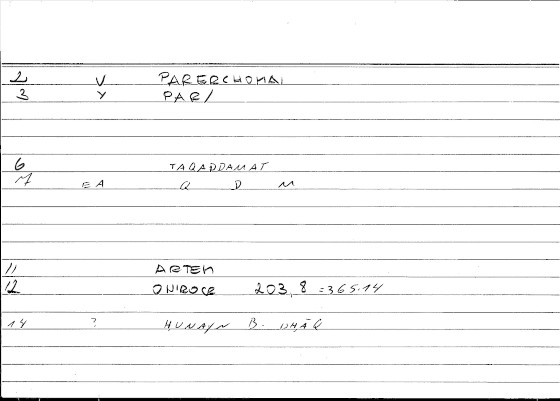 2 V PARERCHOMAI
3 Y PAR/
6 TAQADDAMAT
7 EA Q D M
11 ARTEM
12 ONIROCR 203,8 =365.14
14 ? HUNAYN B. ISHĀQ